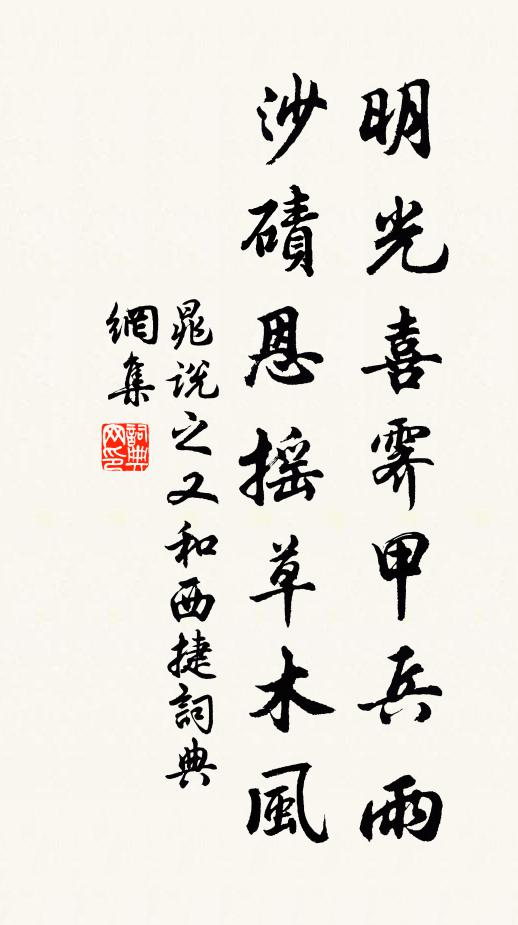 明光喜霽甲兵雨
沙磧恩搖草木風
晁說之又和西捷詞典
網集
詞典
网印